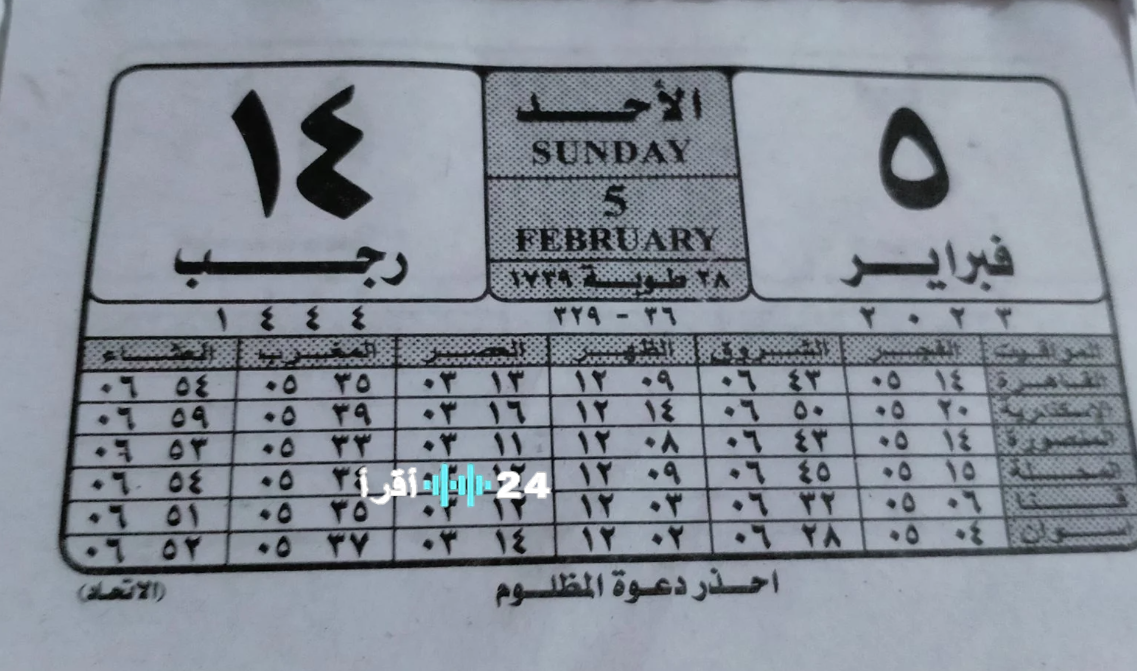 ٥
فبراير
٢٠٢٣
الأحد
SUNDAY
5
FEBRUARY
٢٨ طوبة ١٧٣٩
٣٦ - ٣٢٩
١٤
رجب
١٤٤٤
المواقيت الفجر الشروق الظهر العصر المغرب العشاء
القاهرة ١٤ ٠٥ ٤٣ ٠٦ ٠٩ ١٢ ١٣ ٠٣ ٣٥ ٠٥ ٥٤ ٠٦
الإسكندرية ٢٠ ٠٥ ٥٠ ٠٦ ١٤ ١٢ ١٦ ٠٣ ٣٩ ٠٥ ٥٩ ٠٦
المنصورة ١٤ ٠٥ ٤٣ ٠٦ ٠٨ ١٢ ١١ ٠٣ ٣٣ ٠٥ ٥٣ ٠٦
المحلة ١٥ ٠٥ ٤٥ ٠٦ ٠٩ ١٢ ٠٥ ٥٤ ٠٦
قنا ٠٦ ٠٥ ٣٢ ٠٦ ٠٣ ١٢ ١٢ ٠٣ ٣٥ ٠٥ ٥١ ٠٦
أسوان ٠٤ ٠٥ ٢٨ ٠٦ ٠٢ ١٢ ١٤ ٠٣ ٣٧ ٠٥ ٥٢ ٠٦
24 أقرأ
احذر دعوة المظلوم
(الاتحاد)